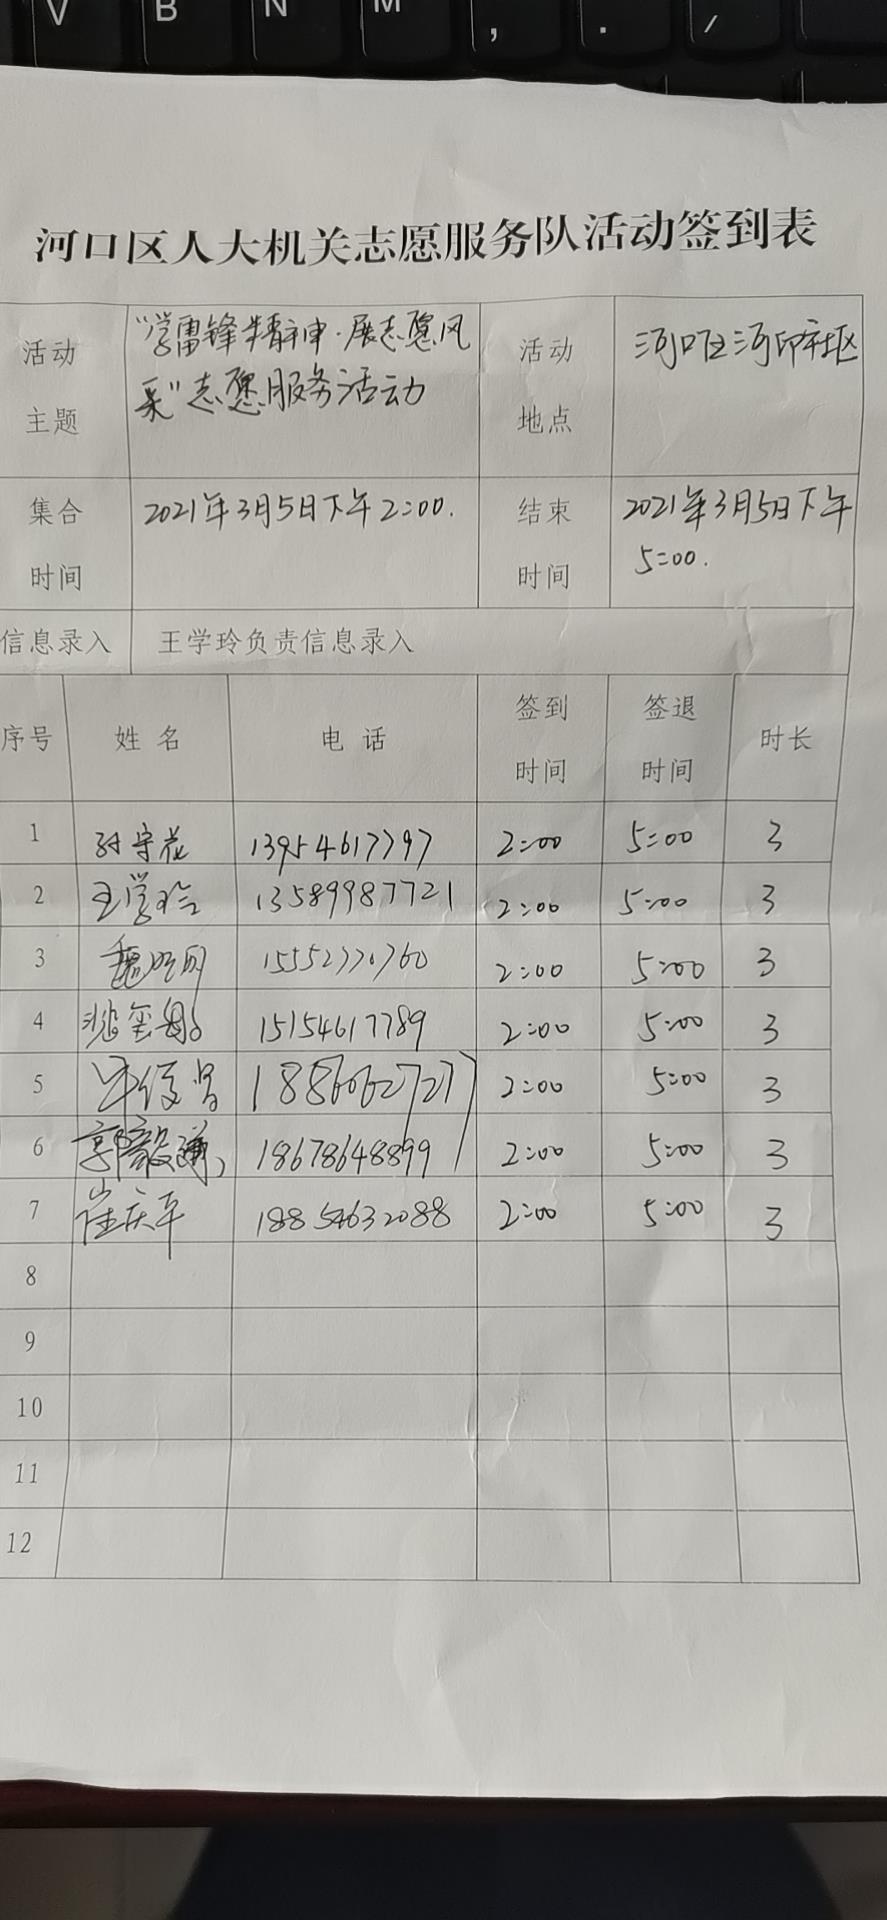 V B N M , . /
河口区人大机关志愿服务队活动签到表
活动主题 "学雷锋精神·展志愿风采"志愿服务活动 活动地点 河口区河印社区
集合时间 2021年3月5日下午2:00. 结束时间 2021年3月5日下午5:00.
信息录入 王学玲负责信息录入
序号 姓名 电话 签到时间 签退时间 时长
1 守花 13954617797 2:00 5:00 3
2 王学玲 13589987721 2:00 5:00 3
3 魏 15552770760 2:00 5:00 3
4 15154617789 2:00 5:00 3
5 牛俊 18560627277 2:00 5:00 3
6 郭毅谦 18678648899 2:00 5:00 3
7 崔庆平 18854632088 2:00 5:00 3
8
9
10
11
12